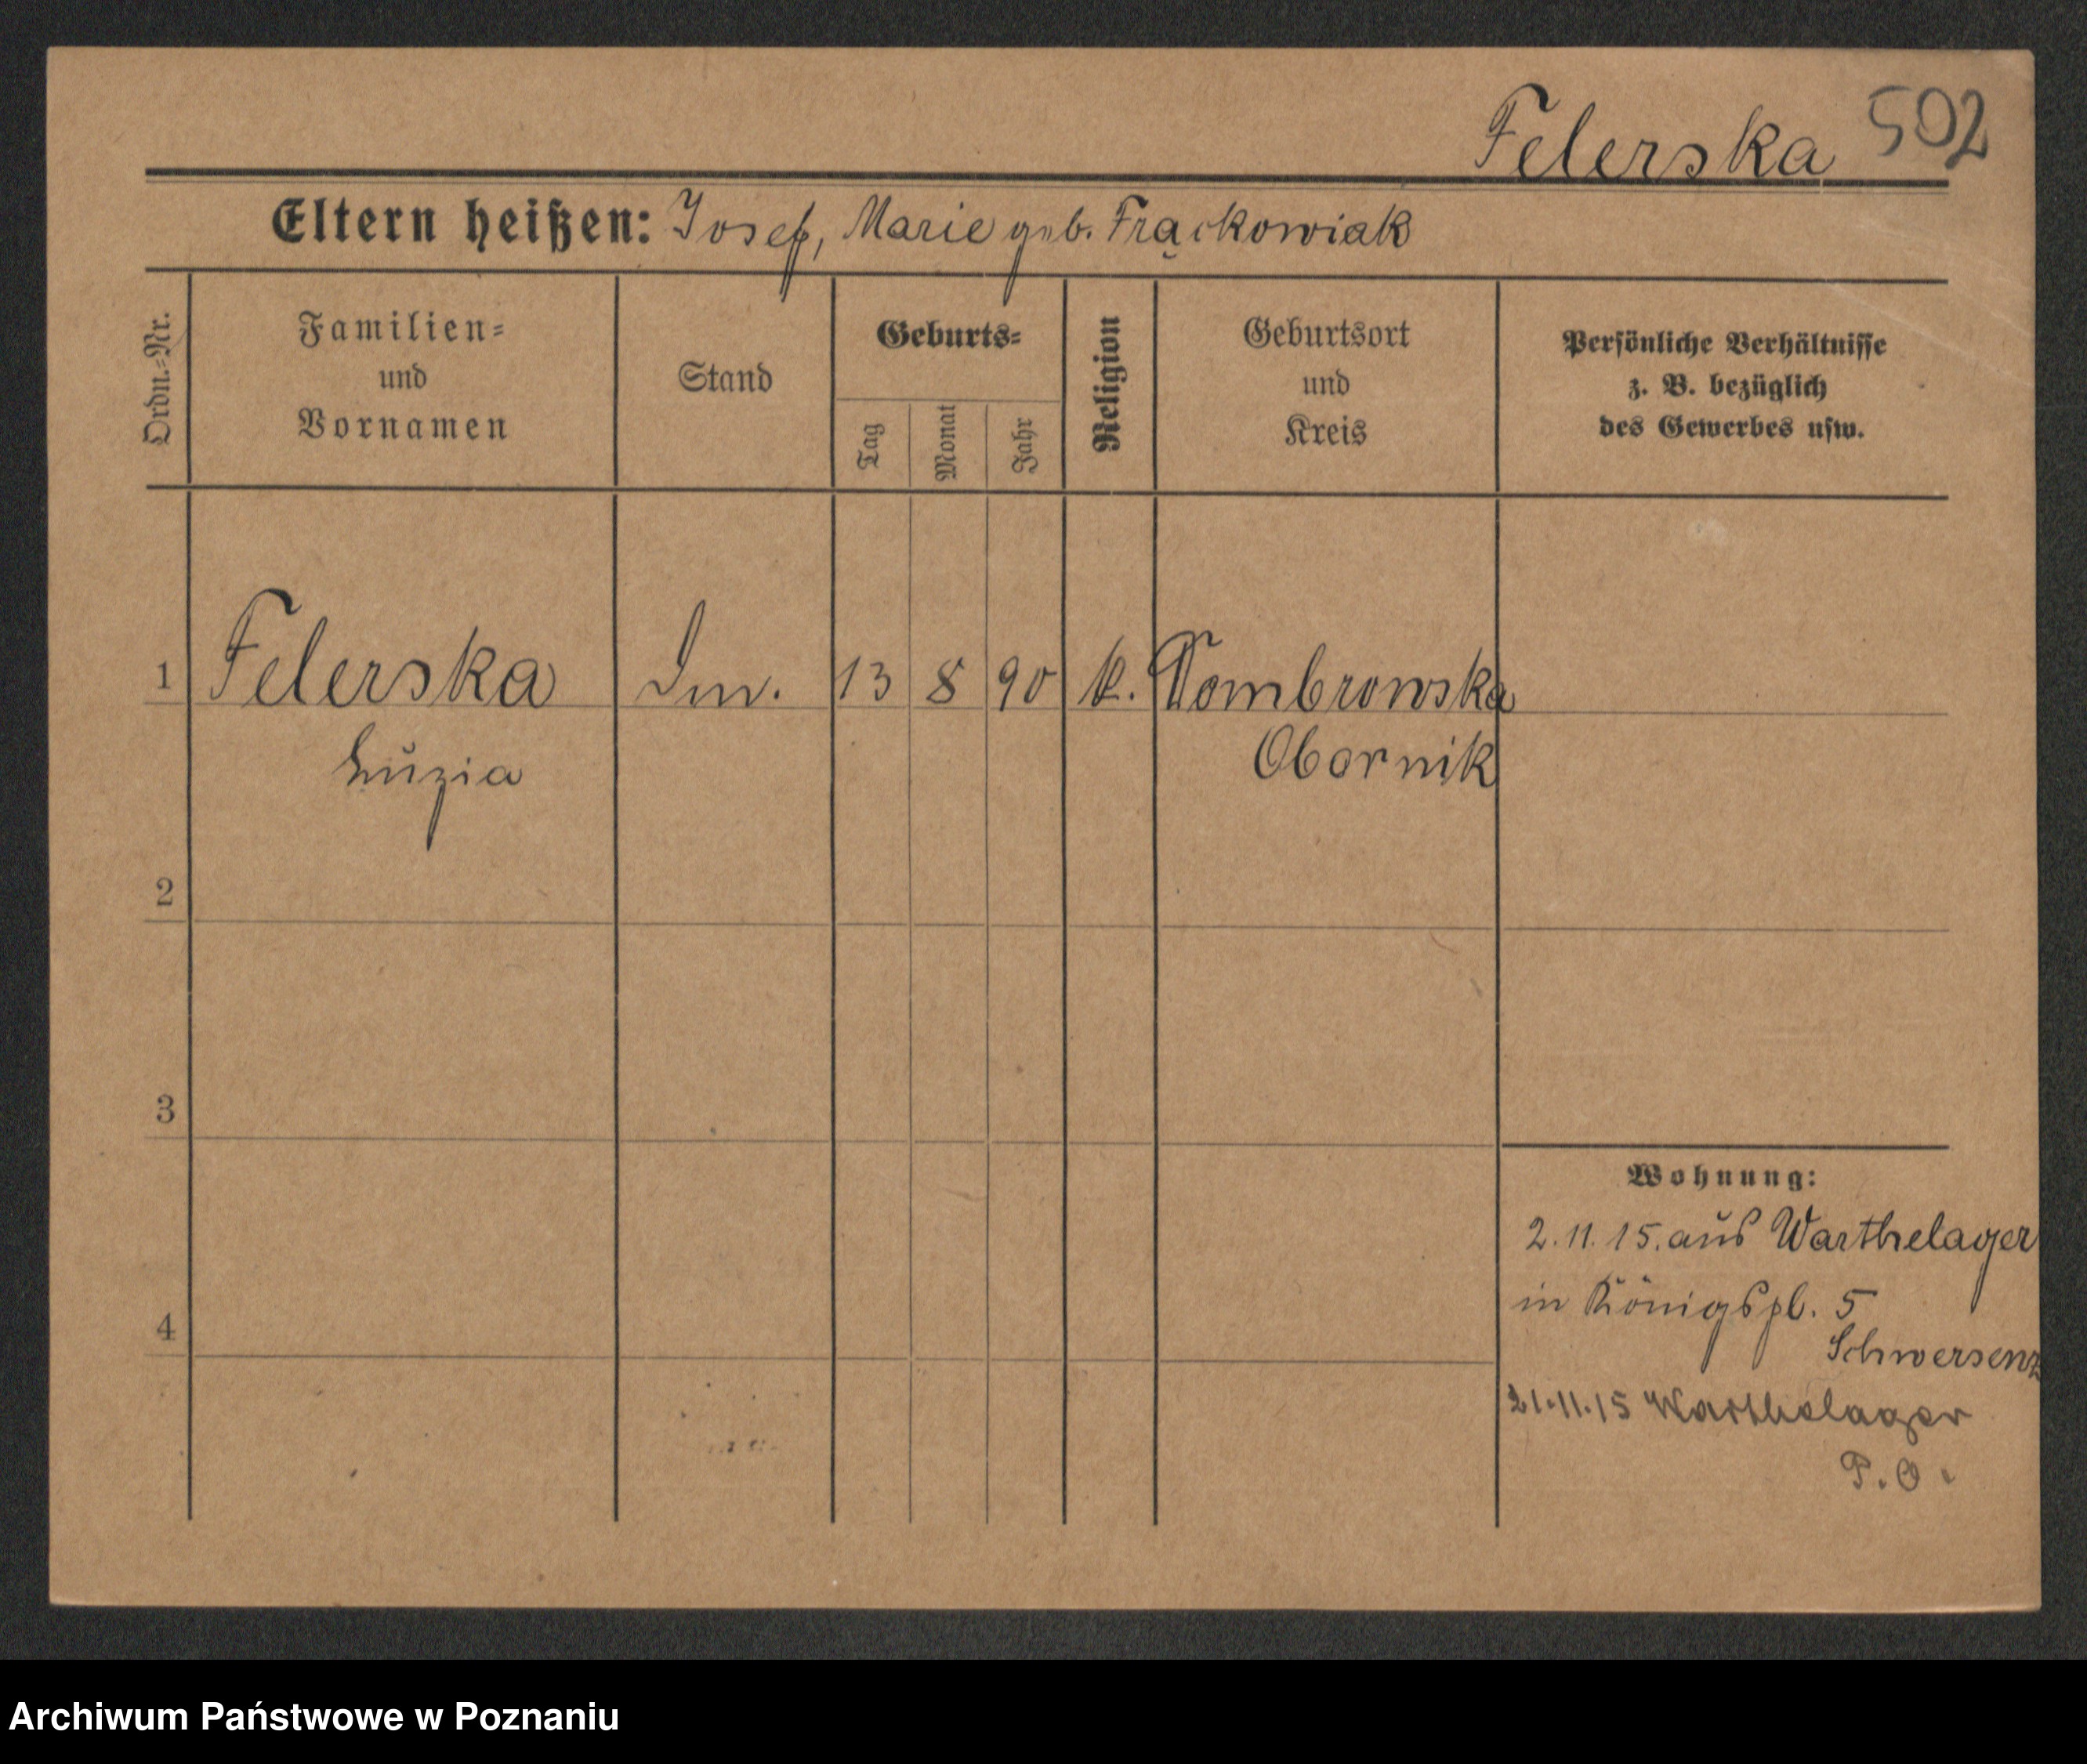 Felerska 502
Eltern heißen: Josef, Marie geb. Frąckowiak
Ordn.-Nr.
Familien-
und
Vornamen
Stand
Geburts-
Tag
Monat
Jahr
Religion
Geburtsort
und
Kreis
Persönliche Verhältnisse
z. B. bezüglich
des Gewerbes usw.
1 Felerska 13 8 90 k. Dombrowska
Luzia Obornik
2
3
4
Wohnung:
2.11.15. aus Warthelager
in Königspl. 5
Schwersenz
21.11.15 Warthelager
P.O.
Archiwum Państwowe w Poznaniu